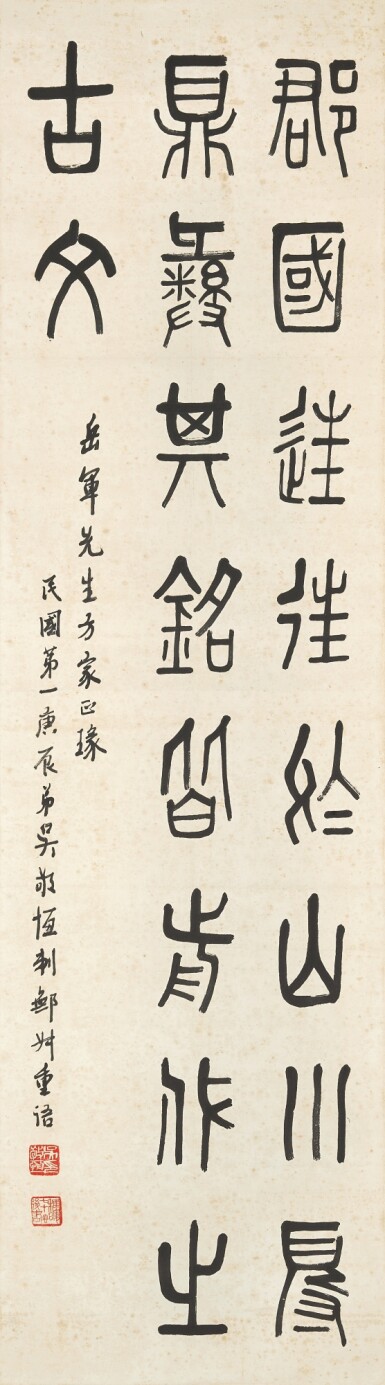 郡國往往於山川得
鼎彝其銘皆前代之
古文
岳軍先生方家正瑑
民國第一庚辰弟吳敬恆刺鄦叔重語